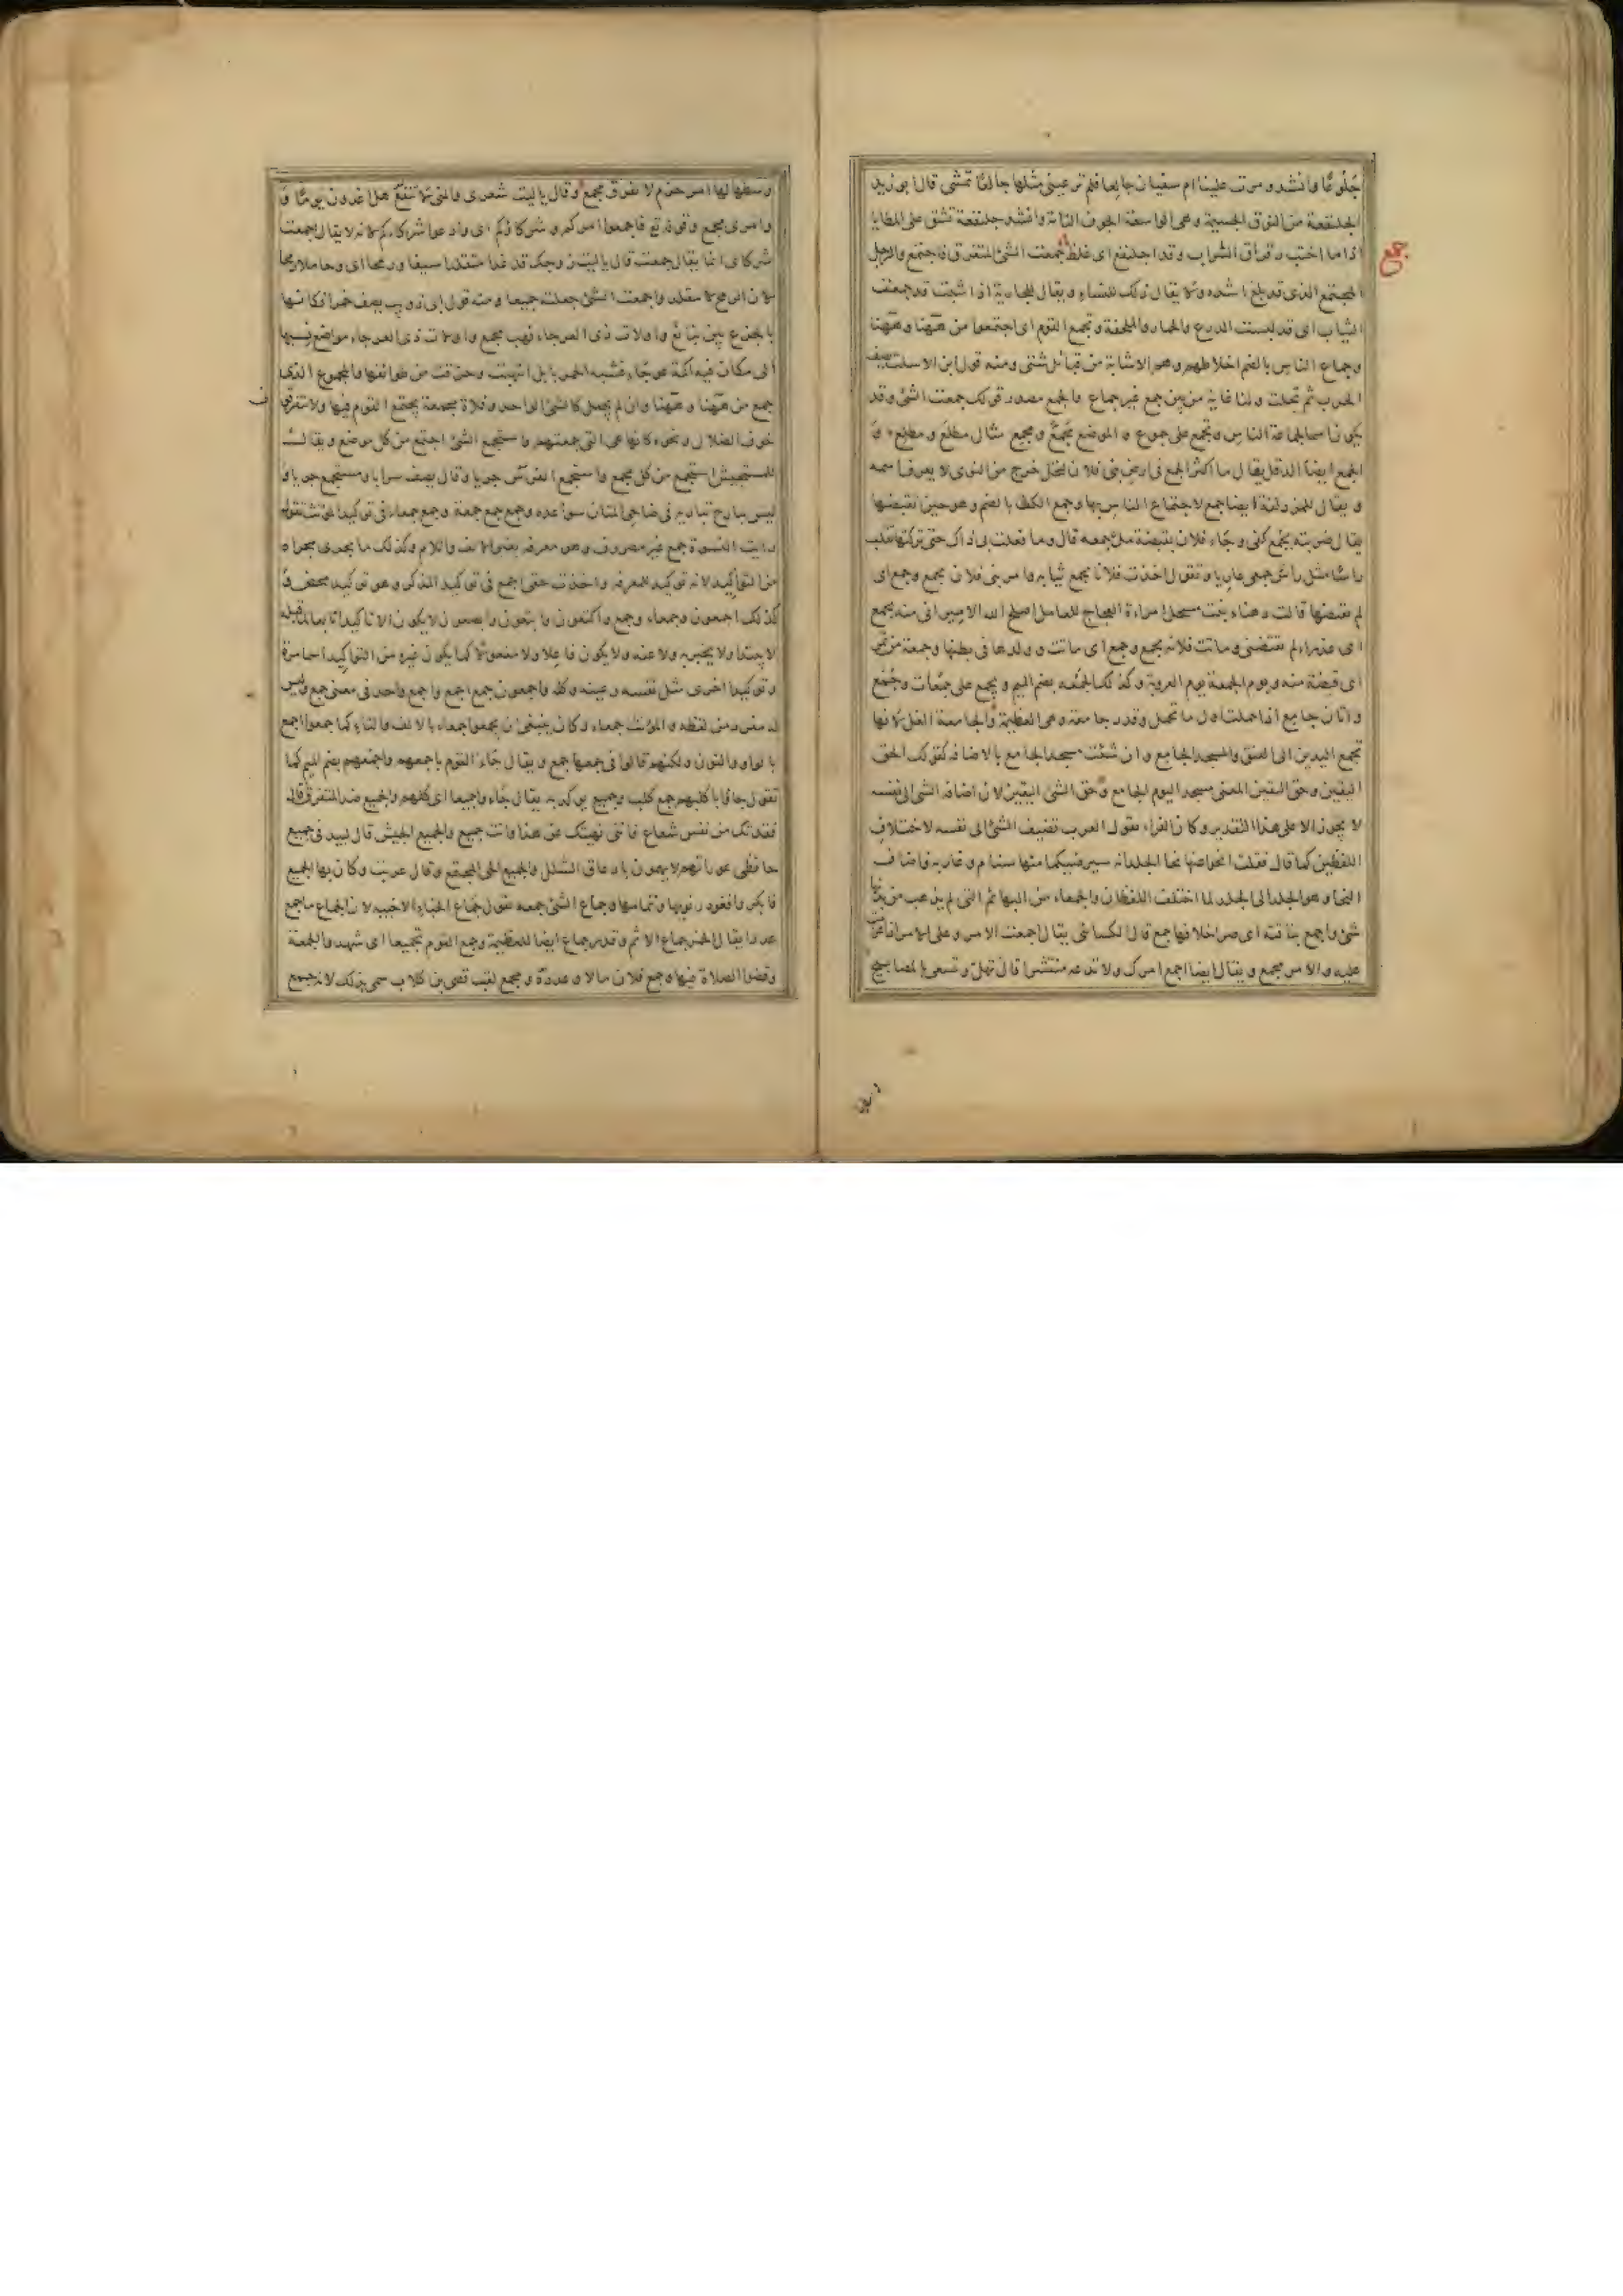 جلوعًا وانشد ومرت علينا ام سفيان جالعا فلم تر عيني مثلها جالعًا تمشي قال ابو زيد
الجلنفعة من النوق الجسيمة وهي الواسعة الجوف التامة وانشد جلنفعة تشق على المطايا
اذا ما اختب رقراق السراب وقد اجلنفع اي غلظ جمعت الشئ المتفرق فاجتمع والرجل
جمع
المجتمع الذي قد بلغ اشده ولا يقال ذلك للنساء ويقال للجارية اذا شبت قد جمعت
الثياب اي قد لبست الدرع والخمار والملحفة وتجمع القوم اي اجتمعوا من ههنا وههنا
وجماع الناس بالضم اخلاطهم وهم الاشابة من قبائل شتى ومنه قول ابن الاسلت يصف
الحرب ثم تجلت ولنا غاية من بين جمع غير جماع والجمع مصدر قولك جمعت الشئ وقد
يكون اسما لجماعة الناس ويجمع على جموع والموضع مجمع ومجمع مثال مطلع ومطلع و
الجمع ايضا الدقل يقال ما اكثر الجمع في ارض بني فلان لنخل خرج من النوى لا يعرف اسمه
ويقال للمزدلفة ايضا جمع لاجتماع الناس بها وجمع الكف بالضم وهو حين تقبضها
يقال ضربته بجمع كفي وجاء فلان بقبضة ملئ جمعه قال وما فعلت بي ذاك حتى تركتها تقلب
راسًا مثل راسي جمعي عاريا وتقول اخذت فلانا بجمع ثيابه وامر بني فلان بجمع وجمع اي
لم يقتضها قالت دهناء بنت مسحل امراءة العجاج للعامل اصلح الله الامير اني منه بجمع
اي عذراء لم يقتضني وماتت فلانه بجمع وجمع اي ماتت وولدها في بطنها وجمعة من تمر
اي قبضة منه ويوم الجمعة يوم العروبة وكذلك الجمعه بضم الميم ويجمع على جمعات وجمع
واتان جامع اذا حملت اول ما تحمل وقدر جامعة وهي العظيمة والجامعة الغل لانها
تجمع اليدين الى العنق والمسجد الجامع وان شئت مسجد الجامع بالاضافه كقولك الحق
اليقين وحق اليقين المعنى مسجد اليوم الجامع وحق الشئ اليقين لان اضافه الشئ الى نفسه
لا يجوز الا على هذا التقدير وكان الفراء يقول العرب تضيف الشئ الى نفسه لاختلاف
اللفظين كما قال فقلت انجوا عنها نجا الجلد انه سيرضيكما منها سنام وغاربه فاضاف
النجا وهو الجلد الى الجلد لما اختلف اللفظان والجمعاء من البهائم التي لم يذهب من بدنها
شئ واجمع بناقته اي صر اخلافها جمع قال الكسائي يقال اجمعت الامر وعلى الامر اذا عزمت
عليه والامر مجمع ويقال ايضا اجمع امرك ولا تدعه منتشرا قال تهل وتسعى بالمصابيح
وسطها لها امر حزم لا يفرق مجمع وقال ياليت شعري والمنى لا تنفع هل اغدون يومًا و
وامري مجمع وقوله تع فاجمعوا امركم وشركاؤكم اي وادعوا شركاءكم لانه لا يقال اجمعت
شركاي انما يقال جمعت قال ياليت زوجك قد غدا متقلدا سيفا ورمحا اي وحاملا رمحا
لان الرمح لا يتقلد واجمعت الشئ جعلت جميعا ومنه قول ابي ذويب يصف حمرا فكانها
بالجزع بين نبايع واولات ذي العرجاء نهب مجمع واولات ذي العرجاء مواضع نسبها
الى مكان فيه اكمة عرجاء فشبه الحمر بابل انتهبت وحزقت من طوائفها والمجموع الذي
جمع من ههنا وههنا وان لم يجعل كالشئ الواحد وفلاة مجمعة يجتمع القوم فيها ولا يتفرق
خوف الضلال ونحوه كانها هي التي جمعتهم واستجمع الشئ اجتمع من كل موضع ويقال
للمستجيش استجمع من كل مجمع واستجمع الفرس جريا وقال يصف سرابا ومستجمع جريا و
ليس ببارح تباريه في ضاحي المتان سواعده وجمع جمع جمعة وجمع جمعاء في توكيد المؤنث تقول
رايت النسوة جمع غير مصروف وهو معرفه بغير الالف واللام وكذلك ما يجري مجراه
من التواكيد لانه توكيد للمعرفه واخذت حقي اجمع في توكيد المذكر وهو توكيد محض و
كذلك اجمعون وجمعاء وجمع واكتعون وابتعون وابصعون لا يكون الا تاكيدا تابعا لما قبله
لا يبتدا ولا يخبر به ولا عنه ولا يكون فاعلا ولا مفعولا كما يكون غيره من التواكيد اسما مرة
وتوكيدا اخرى مثل نفسه وعينه وكله واجمعون جمع اجمع واجمع واحد في معنى جمع وليس
له مفرد من لفظه والمؤنث جمعاء وكان ينبغي ان يجمعوا جمعاء بالالف والتاء كما جمعوا اجمع
بالواو والنون ولكنهم قالوا في جمعها جمع ويقال جاء القوم باجمعهم واجمعهم بضم الميم كما
تقول جاؤا باكلبهم جمع كلب وجميع يوكد به يقال جاء واجميعا اي كلهم والجميع ضد المتفرق قال
فقدتك من نفس شعاع فانني نهيتك عن هذا وانت جميع والجميع الجيش قال لبيد في جميع
حافظي عوراتهم لا يهمون بادعاق الشلل والجميع الحي المجتمع وقال عريت وكان بها الجميع
فابكروا فغودر نويها وثمامها وجماع الشئ جمعه تقول جماع الخباء الاخبيه لان الجماع ما جمع
عددا يقال الخمر جماع الاثم وقدر جماع ايضا للعظيمة وجمع القوم تجميعا اي شهدوا الجمعة
وقضوا الصلاة فيها وجمع فلان مالا وعدده ومجمع لقب قصي بن كلاب سمي بذلك لانه جمع